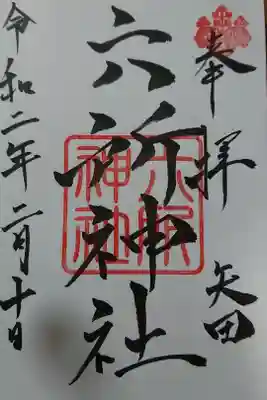 奉拝 矢田
六所神社
六所
神社
令和二年二月十日